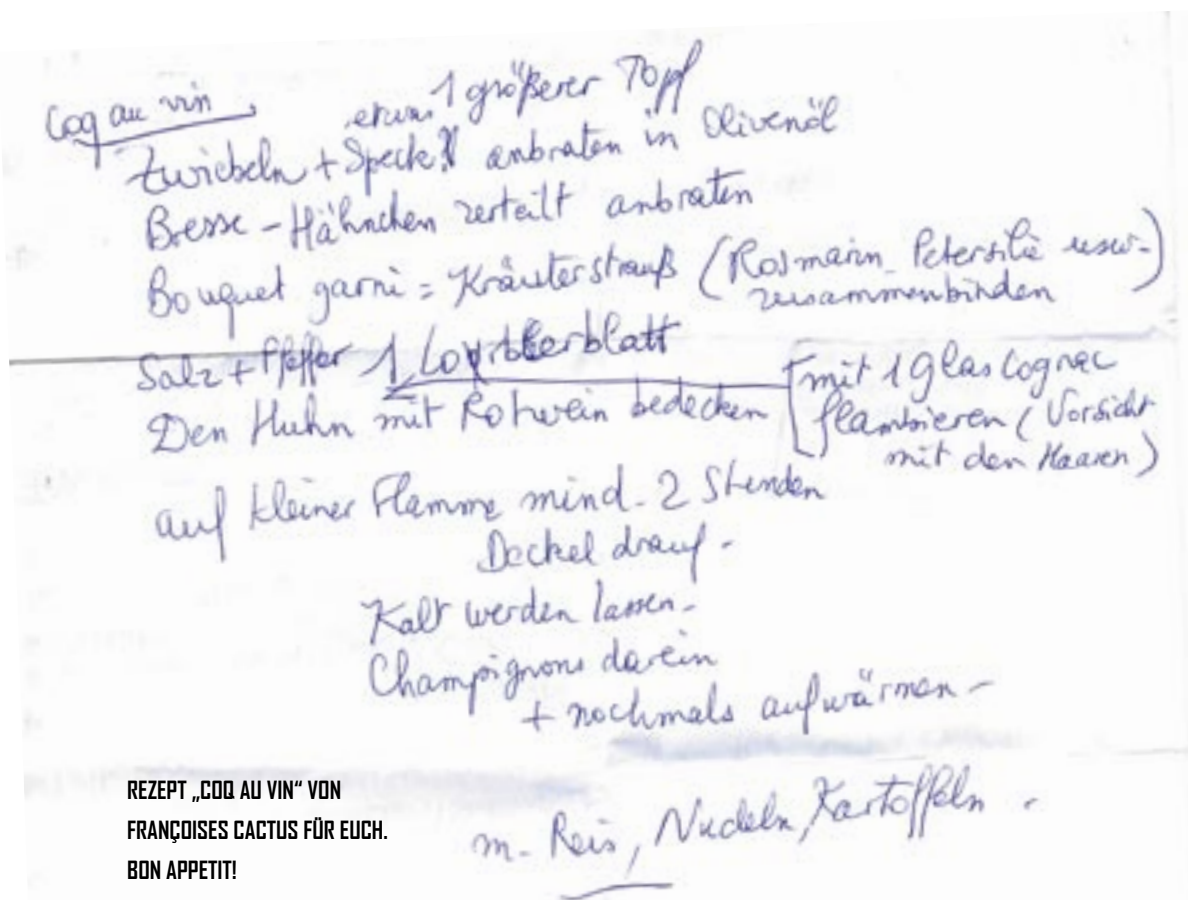 Coq au vin
1 größerer Topf
etwas
Zwiebeln + Speck anbraten in Olivenöl
Bresse - Hähnchen zerteilt anbraten
Bouquet garni = Kräuterstrauß (Rosmarin Petersilie usw-)
zusammenbinden
Salz + Pfeffer 1 Lorbeerblatt
mit 1 Glas Cognac
flambieren (Vorsicht
mit den Haaren)
Den Huhn mit Rotwein bedecken
auf kleiner Flamme mind. 2 Stunden
Deckel drauf -
Kalt werden lassen -
Champignons darein
+ nochmals aufwärmen -
m. Reis, Nudeln, Kartoffeln -
REZEPT „COQ AU VIN“ VON
FRANÇOISES CACTUS FÜR EUCH.
BON APPETIT!